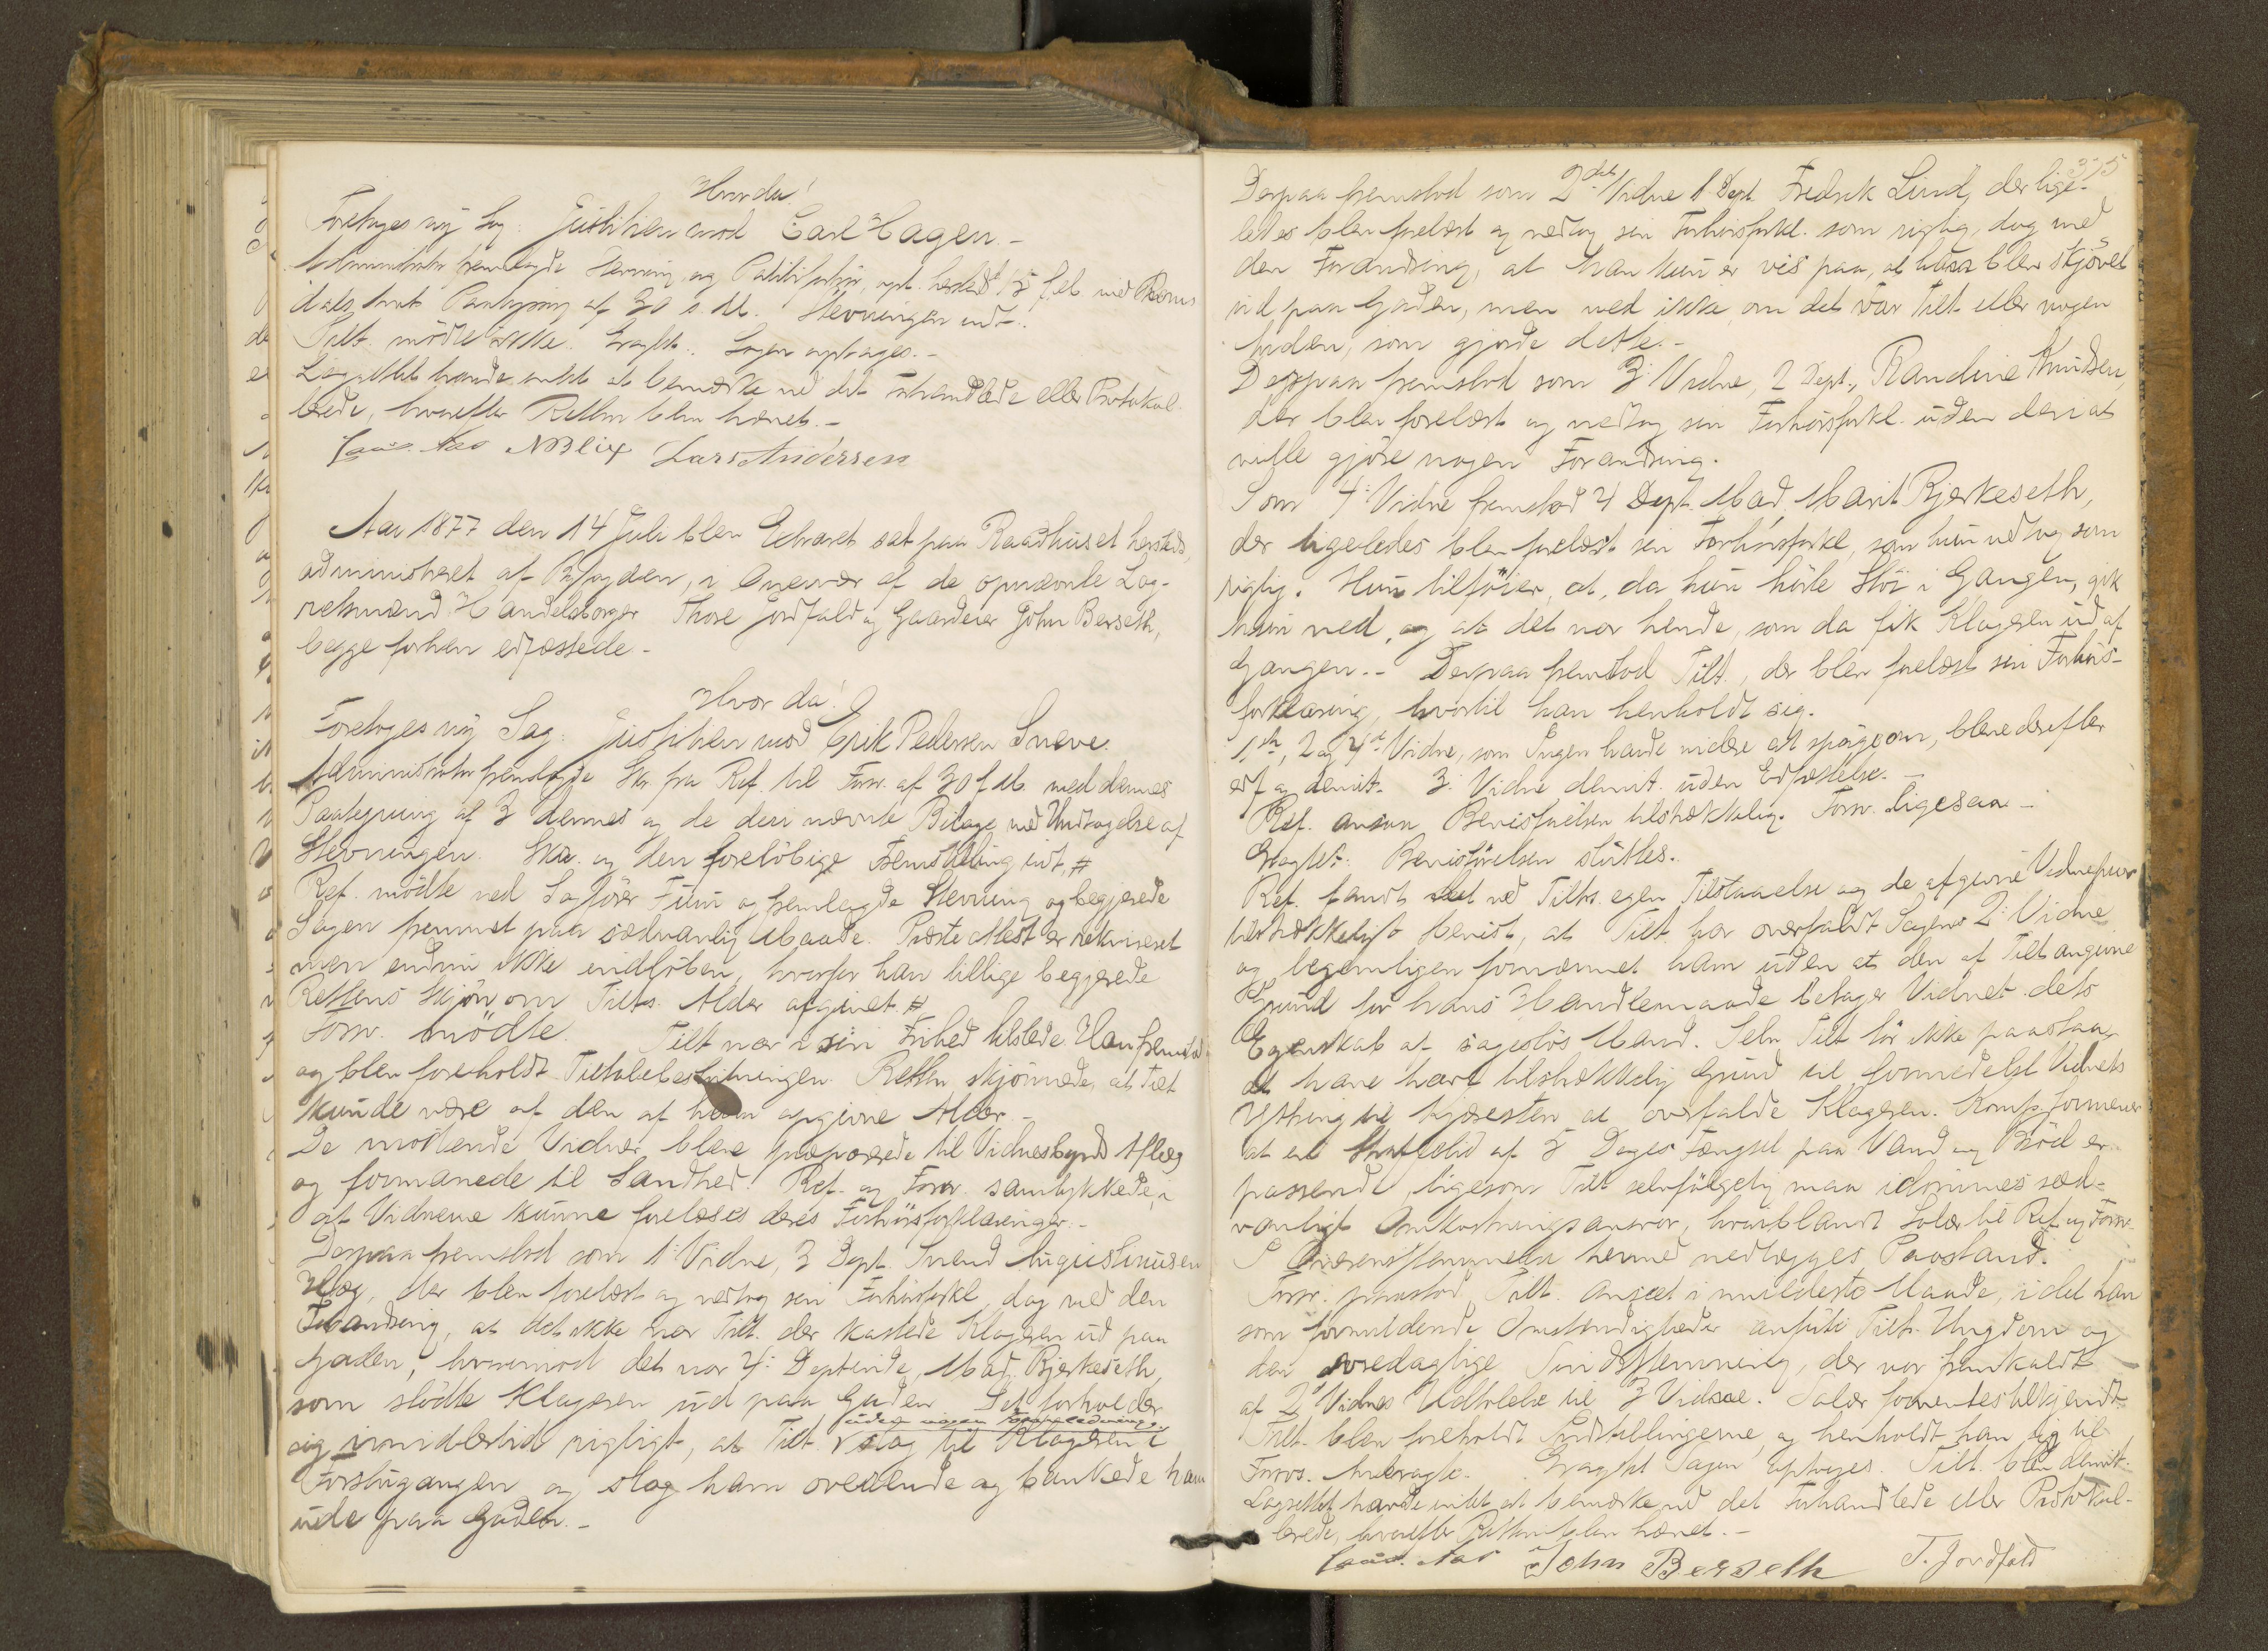 Hvor da!
Foretoges ny Sag: Justitien mod Carl Hagen.-
Administrator fremlagde Stevning og Politiforhør, opt. herst. d. 13 f. M. med Rems
Paategning af 30 s. M. Stevningen indt.
Tilt. mødte ikke. Eragtet: Sagen optages.-
Lagrettet havde intet at bemærke ved det Forhandlede eller Protokol-
lerede, hvorefter Retten blev hævet.-
NBlix Lars Andersen
Aar 1877 den 14 Juli blev Extraret sat paa Raadhuset hersteds,
administreret af Byfogden, i Overvær af de opnævnte Lag-
rettemænd Handelsborger Thore Jordfald og Gaardeier John Berseth,
begge forhen edfæstede.-
Hvor da!
Foretoges ny Sag: Justitien mod Erik Pedersen Sneve.
Administrator fremlagde Skr. fra Ref. til Forsv. af 30 f. M. med dennes
Paategning af 3 dennes og de deri nævnte Bilage med Undtagelse af
Stevningen. Skr. og den foreløbige Fremstilling indt. #
Ref. mødte ved Sagfører Fuun og fremlagde Stevning og begjærede
Sagen fremmet paa sædvanlig Maade. Præsteattest er rekvireret
men endnu ikke indløben, hvorfor han tillige begjærede
Rettens Skjøn om Tilts. Alder afgivet. #
Forsv. mødte. Tilt. var i sin Frihed tilstede. Han fremstod
og blev foreholdt Tiltalebeslutningen. Retten skjønnede, at Tilt.
kunde være af den af ham opgivne Alder.-
De mødende Vidner bleve præparerede til Vidnesbyrds Aflæg
og formanede til Sandhed. Ref. og Forsv. samtykkede i
at Vidnerne kunne forelæses deres Forhørsforklaringer.-
Derpaa fremstod som 1' Vidne, 3 Dept. Svend Augustinusen
Hlæg, der blev forelæst og vedtog sin Forhørsforkl., dog med den
Forandring, at det ikke var Tilt. der kastede Klageren ud paa
Gaden, hvorimod det var 4' Deptinde, Mad. Bjerkeseth,
som stødte Klageren ud paa Gaden. Det forholder
uden nogen Foranledning
sig imidlertid rigtigt, at Tilt. slog til Klageren i
Forstugangen og slog ham overende og bankede ham
ude paa Gaden.-
375
Derpaa fremstod som 2det Vidne 1 Dept. Fredrik Lund, der lige-
ledes blev forelæst og vedtog sin Forhørsforkl. som rigtig, dog med
den Forandring, at han kun er vis paa, at han blev skjøvet
ud paa Gaden, men ved ikke, om det var Tilt. eller nogen
Anden, som gjorde dette.-
Derpaa fremstod som 3' Vidne, 2 Dept., Randine Knudsen,
der blev forelæst og vedtog sin Forhørsforkl. uden deri at
ville gjøre nogen Forandring.
Som 4' Vidne fremstod 4 Dept. Mad. Marit Bjerkeseth,
der ligeledes blev forelæst sin Forhørsforkl., som hun vedtog som
rigtig. Hun tilføier, at, da hun hørte Støi i Gangen, gik
hun ned, og at det var hende, som da fik Klageren ud af
Gangen.- Derpaa fremstod Tilt., der blev forelæst sin Forhørs-
forklaring, hvortil han henholdt sig.
1ste, 2 og 4de Vidne, som Ingen havde videre at spørge om, bleve derefter
edf. og demit. 3' Vidne demit. uden Edfæstelse.-
Ref. ansaa Bevisførelsen tilstrækkelig. Forsv. ligesaa.-
Eragtet: Bevisførelsen sluttes.
Ref. fandt det ved Tilts. egen Tilstaaelse og de afgivne Vidneprov
tilstrækkeligt bevist, at Tilt. har overfaldt Sagens 2' Vidne
og legemligen fornærmet ham uden at den af Tilt. angivne
Grund for hans Handlemaade betager Vidnet dets
Egenskab af sagesløs Mand. Selv Tilt. tør ikke paastaa
at have havt tilstrækkelig Grund til formedelst Vidnets
Yttring til Kjæresten at overfalde Klageren. Komp. formener
at en Straffetid af 5 Dages Fængsel paa Vand og Brød er
passende, ligesom Tilt. selvfølgelig maa idømmes sæd-
vanligt Omkostningsansvar, hvoriblandt Salær til Ref. og Forsv.
I Overensstemmelse hermed nedlægges Paastand.
Forsv. paastod Tilt. anseet i mildeste Maade, idet han
som formildende Omstændigheder anførte Tilts. Ungdom og
den Sindsstemning, der var fremkaldt
af 2' Vidnes Udtalelse til 3 Vidne. Salær formentes tilkjendt.
Tilt. blev foreholdt Indstillingerne, og henholdt han sig til
Forsvs. Anbragte. Eragtet: Sagen optages. Tilt. blev demit.
Lagrettet havde intet at bemærke ved det Forhandlede eller Protokol-
lerede, hvorefter Retten blev hævet.-
John Berseth T. Jordfald